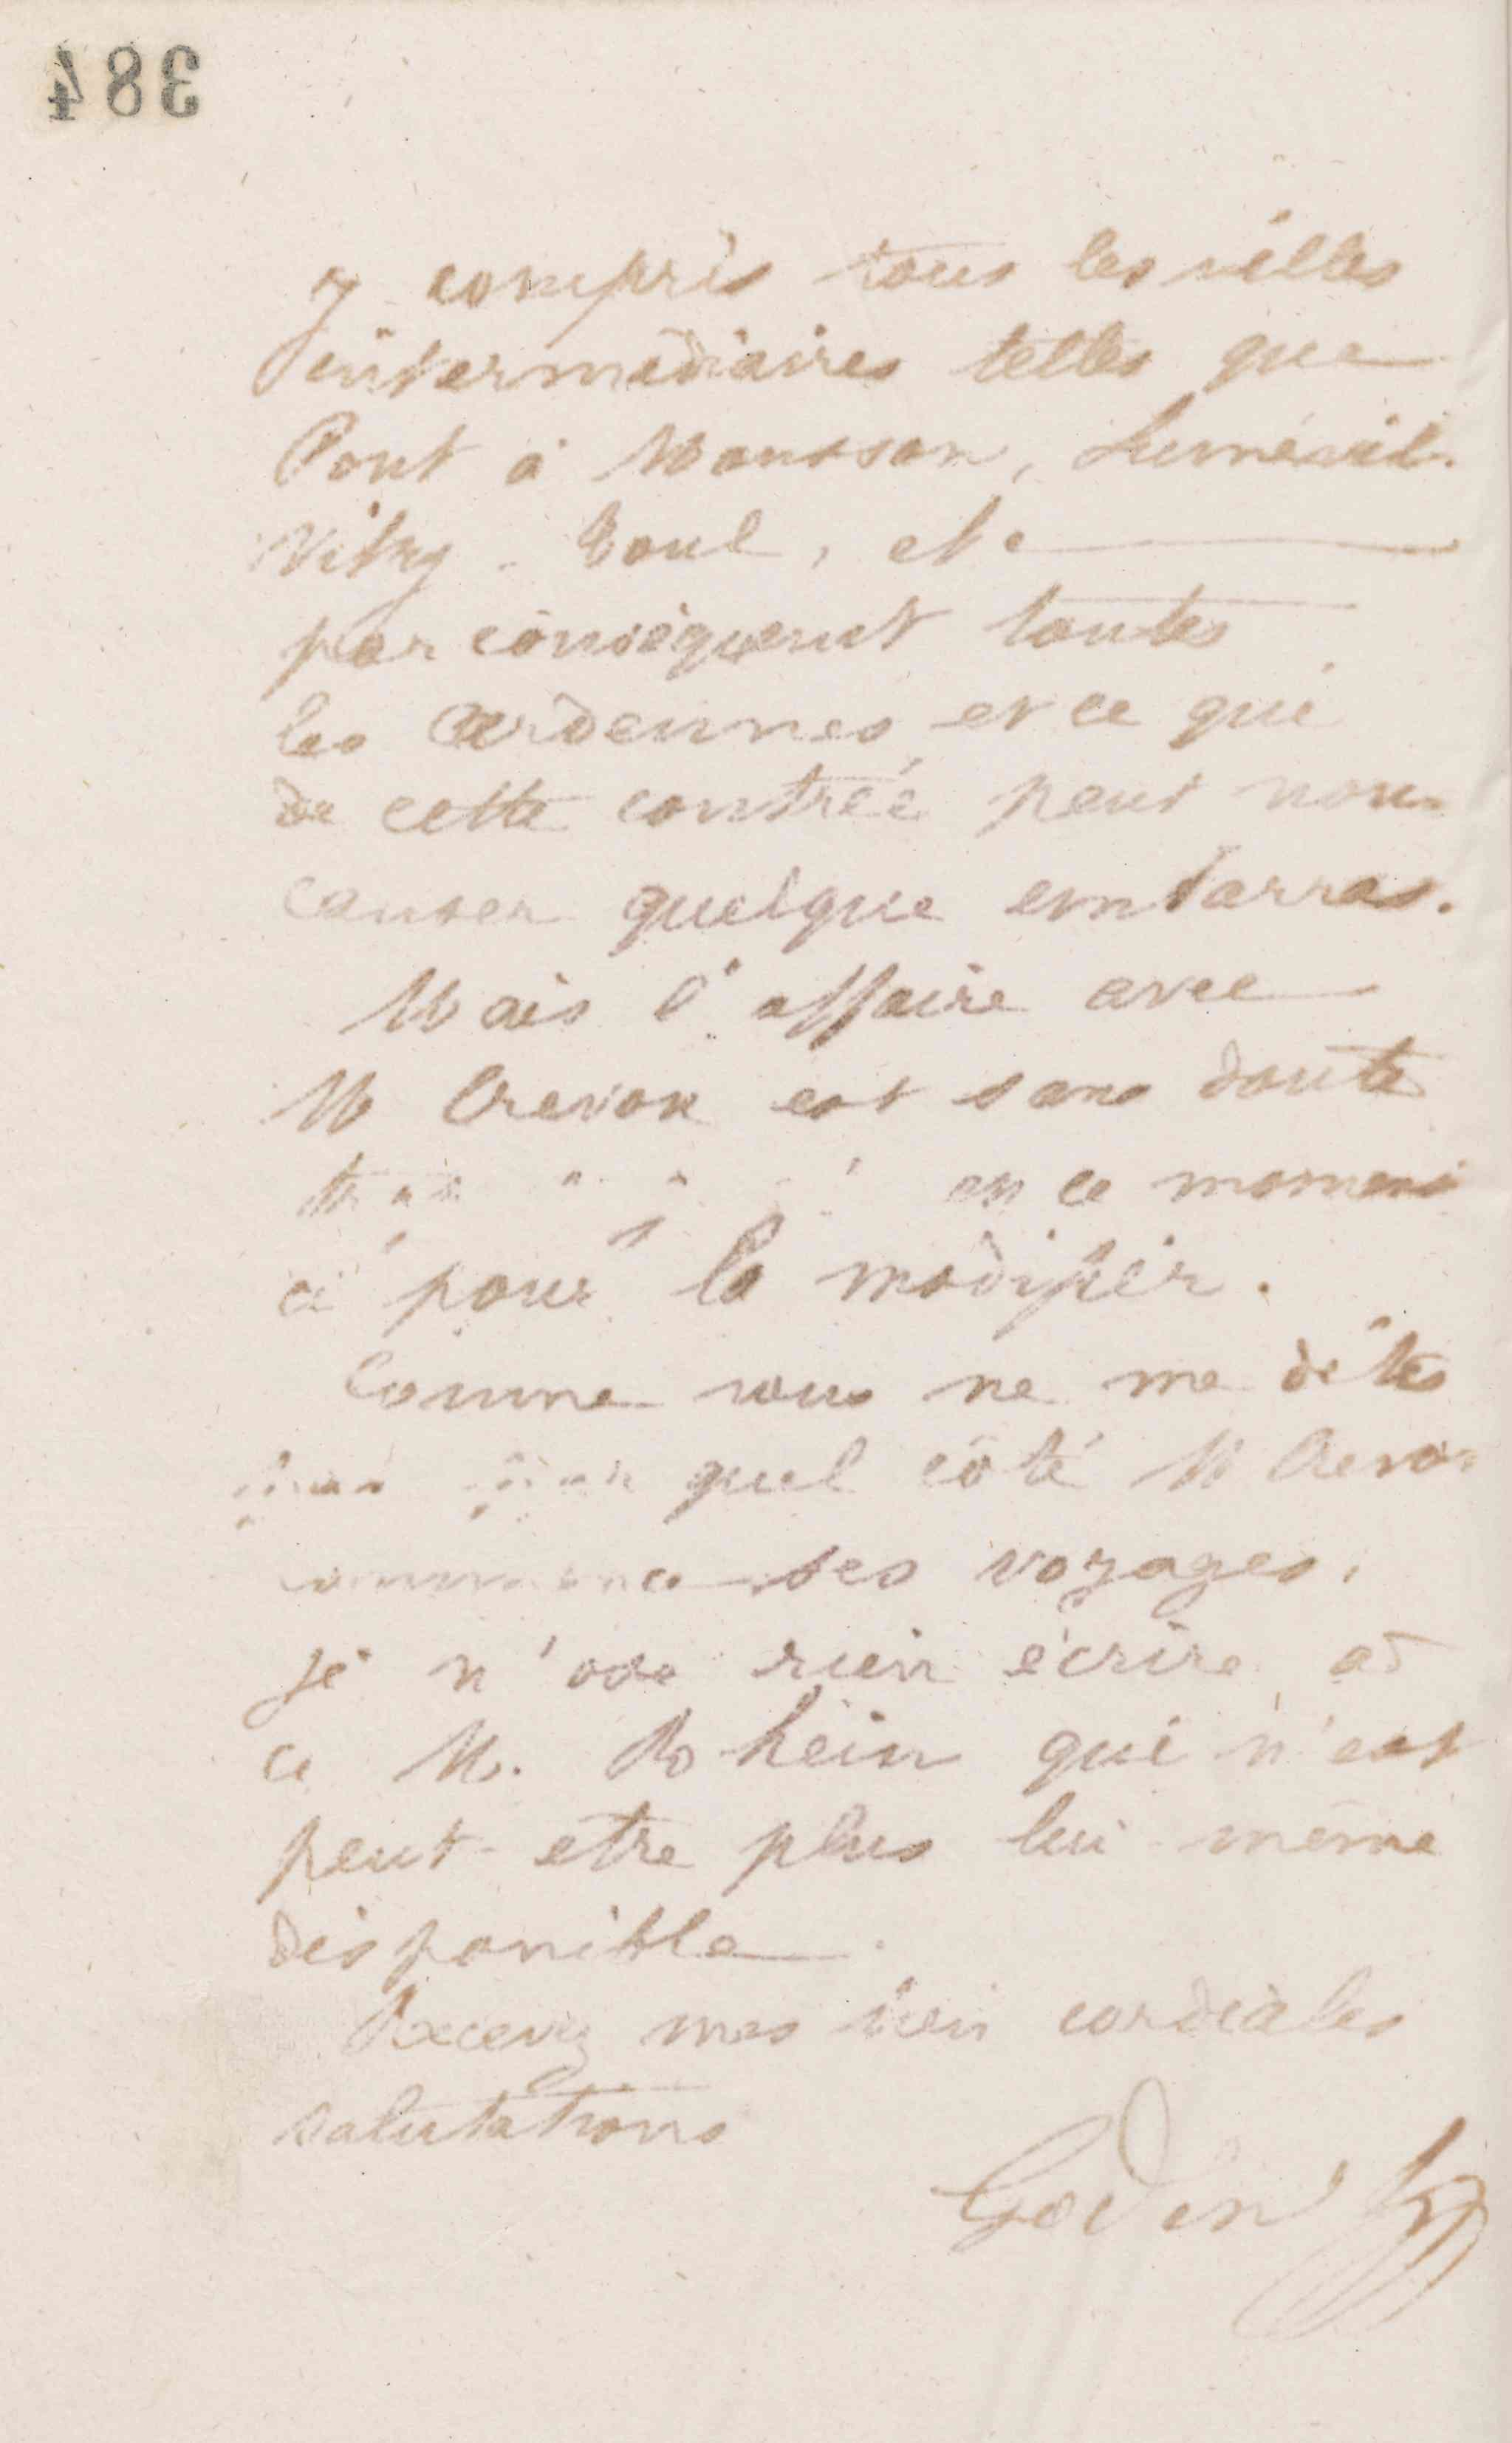 384
y compris tous les villes
intermédiaires telles que
Pont à Mousson, Lunévil.
Vitry. Toul, etc
par conséquent toutes
les Ardennes, et ce qui
de cette contrée peut nous
causer quelque embarras.
Mais l'affaire avec
M Crevon est sans doute
en ce moment
ci pour la modifier.
Comme vous ne me dites
pas par quel côté M Crevon
commence ses voyages,
je n'ose rien écrire à
ce M. Rohein qui n'est
peut-etre plus lui-même
disponible.
Recevez mes bien cordiales
salutations
Godin